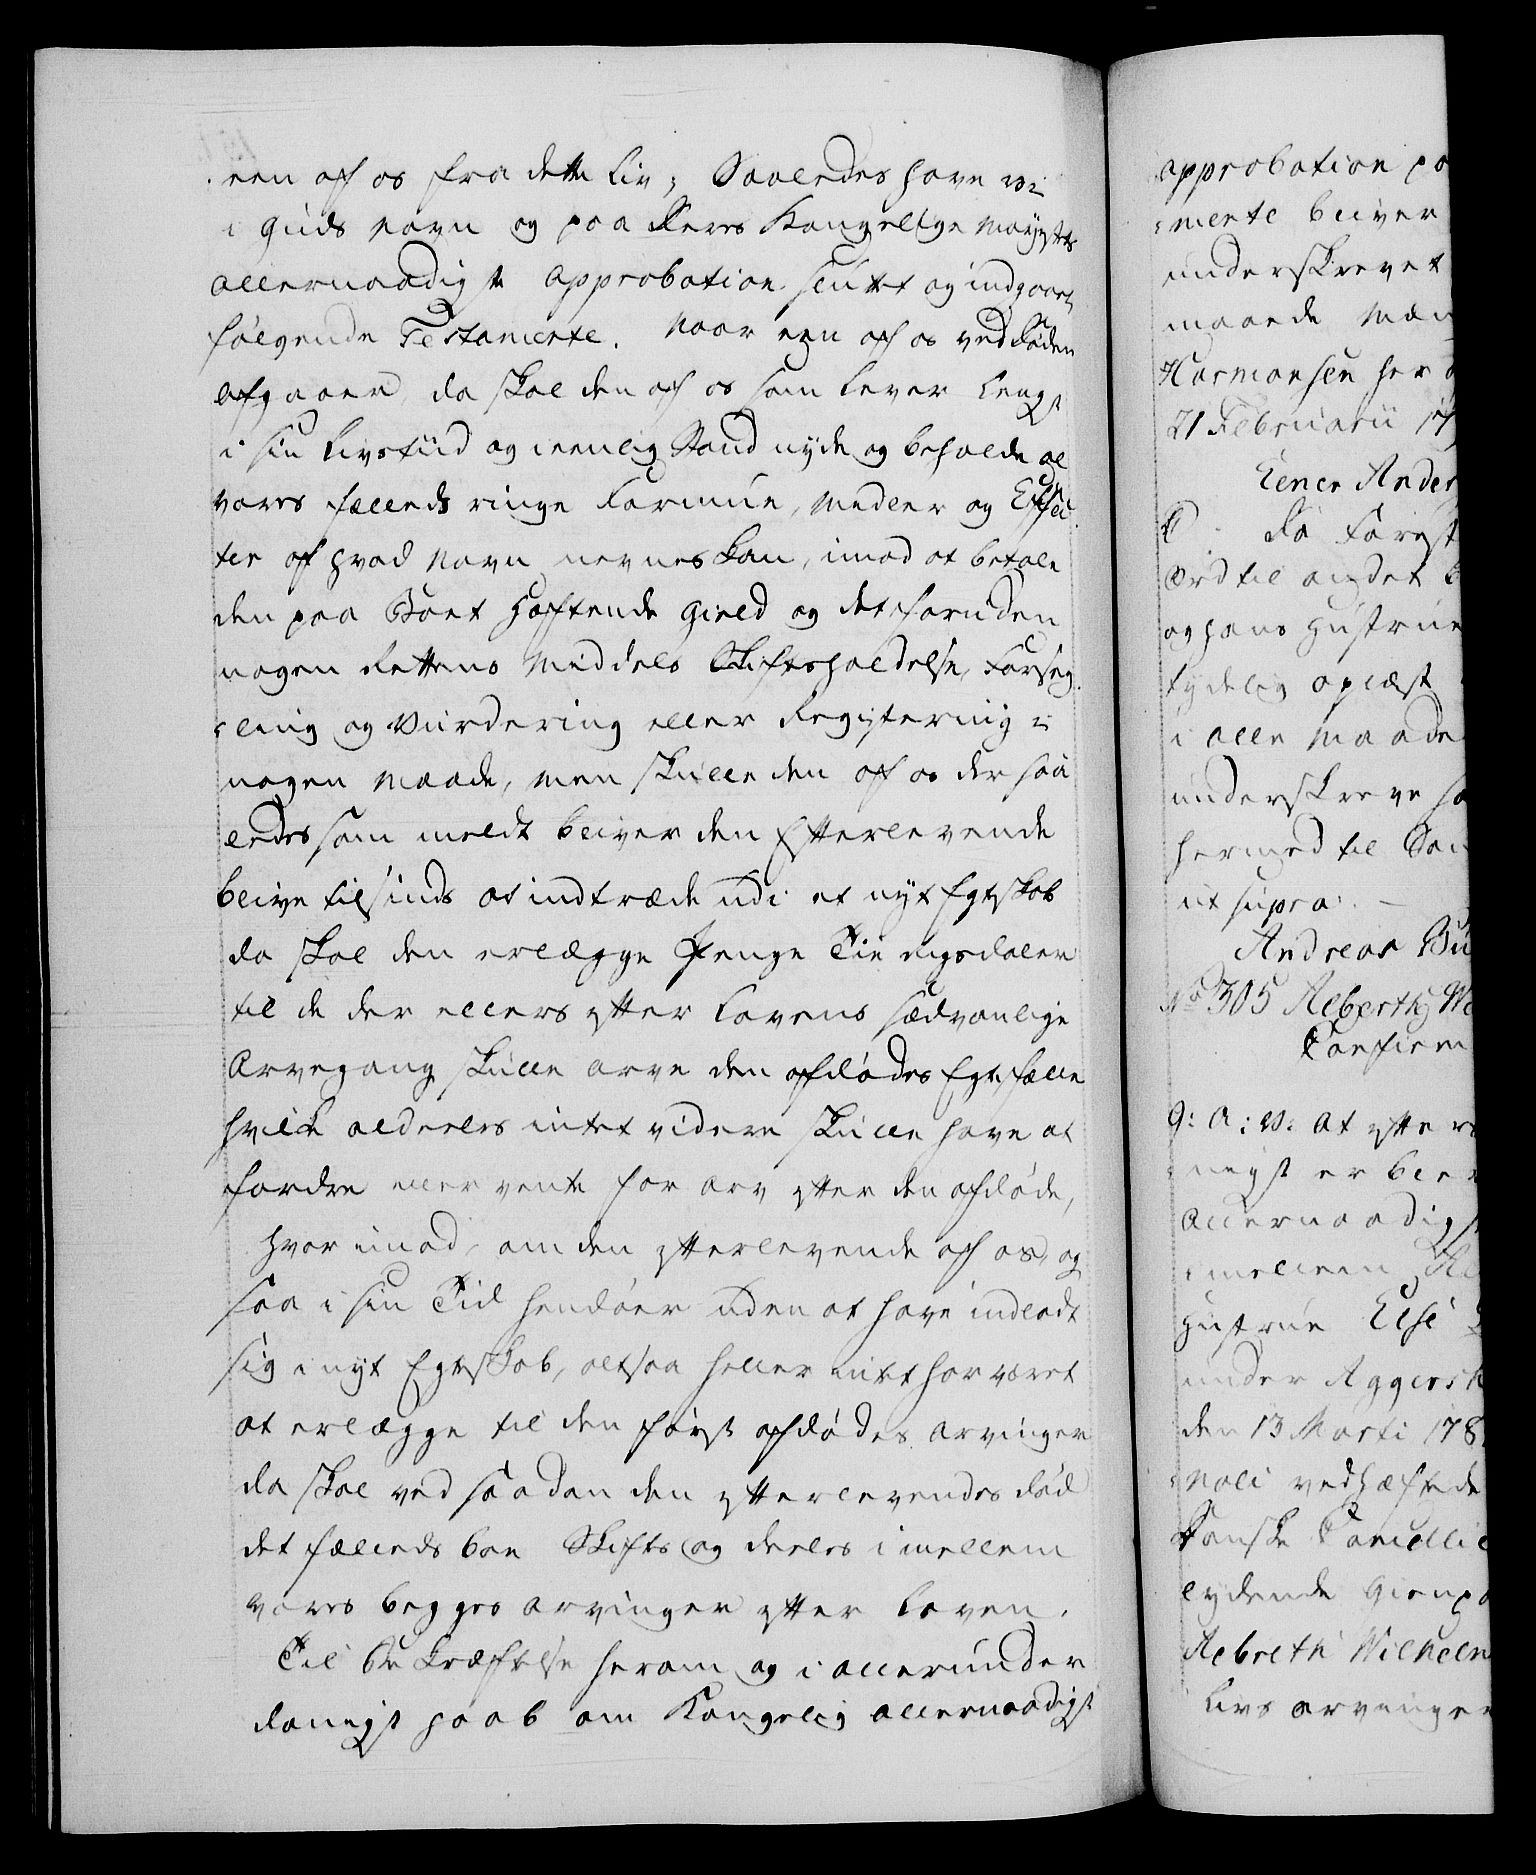 een af os fra dette Liv; Saaledes have vi
i Guds Navn og paa Deres Kongelige Mayestts
allernaadigste approbation sluttet og indgaaet
følgende Testamente. Naar een af os ved Døden
afgaaer, da skal den af os som lever længst
i sin Livstiid og eenlig Stand nyde og beholde al
vores fælleds ringe Formue, Medler og Effec
ter af hvad Navn nevnes kan, imod at betale
den paa Boet hæftende Gield og det foruden
nogen Rettens Middels Skiftsholdelse, Forseg
ling og Vurdering eller Registering i
nogen Maade, men skulle den af os der saa
ledes som meldt bliver den Efterlevende
blive tilsinds at indtræde udi et nyt Egteskab
da skal den erlægge Penge Tie rigsdaler
til de der ellers efter Lovens sædvanlige
Arvegang skulle arve den afdødes Egtefælle
hvilke aldeeles intet videre skulle have at
fordre eller vente for arv efter den afdøde,
hvorimod, om den efterlevende af os, og
saa i sin Tid hendøer uden at have indladt
sig i nyt Egteskab, altsaa heller intet har været
at erlægge til den først afdødes arvinger
da skal ved saadan den efterlevendes død
det fælleds boe Skiftes og deeles imellem
vores begges arvinger efter Loven.
Til Bekræftelse herom og i allerunder
danigst haab om Kongelig allernaadigst
approbation pa
mente bliver
underskrevet
maade Men
Harmansen her
21 Februarii 17
Elener Ander
Da Forest
Ord til andet
og hans Hustrue
tydelig oplæst
i alle Maade
underskreve
hermed til
ut supra. –
Andreas Bu
No 305 Alberth W
Confirm
G: A: V: At efter
nigst er ble
allernaadigst
mellem
Hustrue Else
under Aggersh
den 13 Marti 178
nali vedhæftede
Danske Cancellie
lydende Gienp
Albreth Wilhelm
Livs arvinger